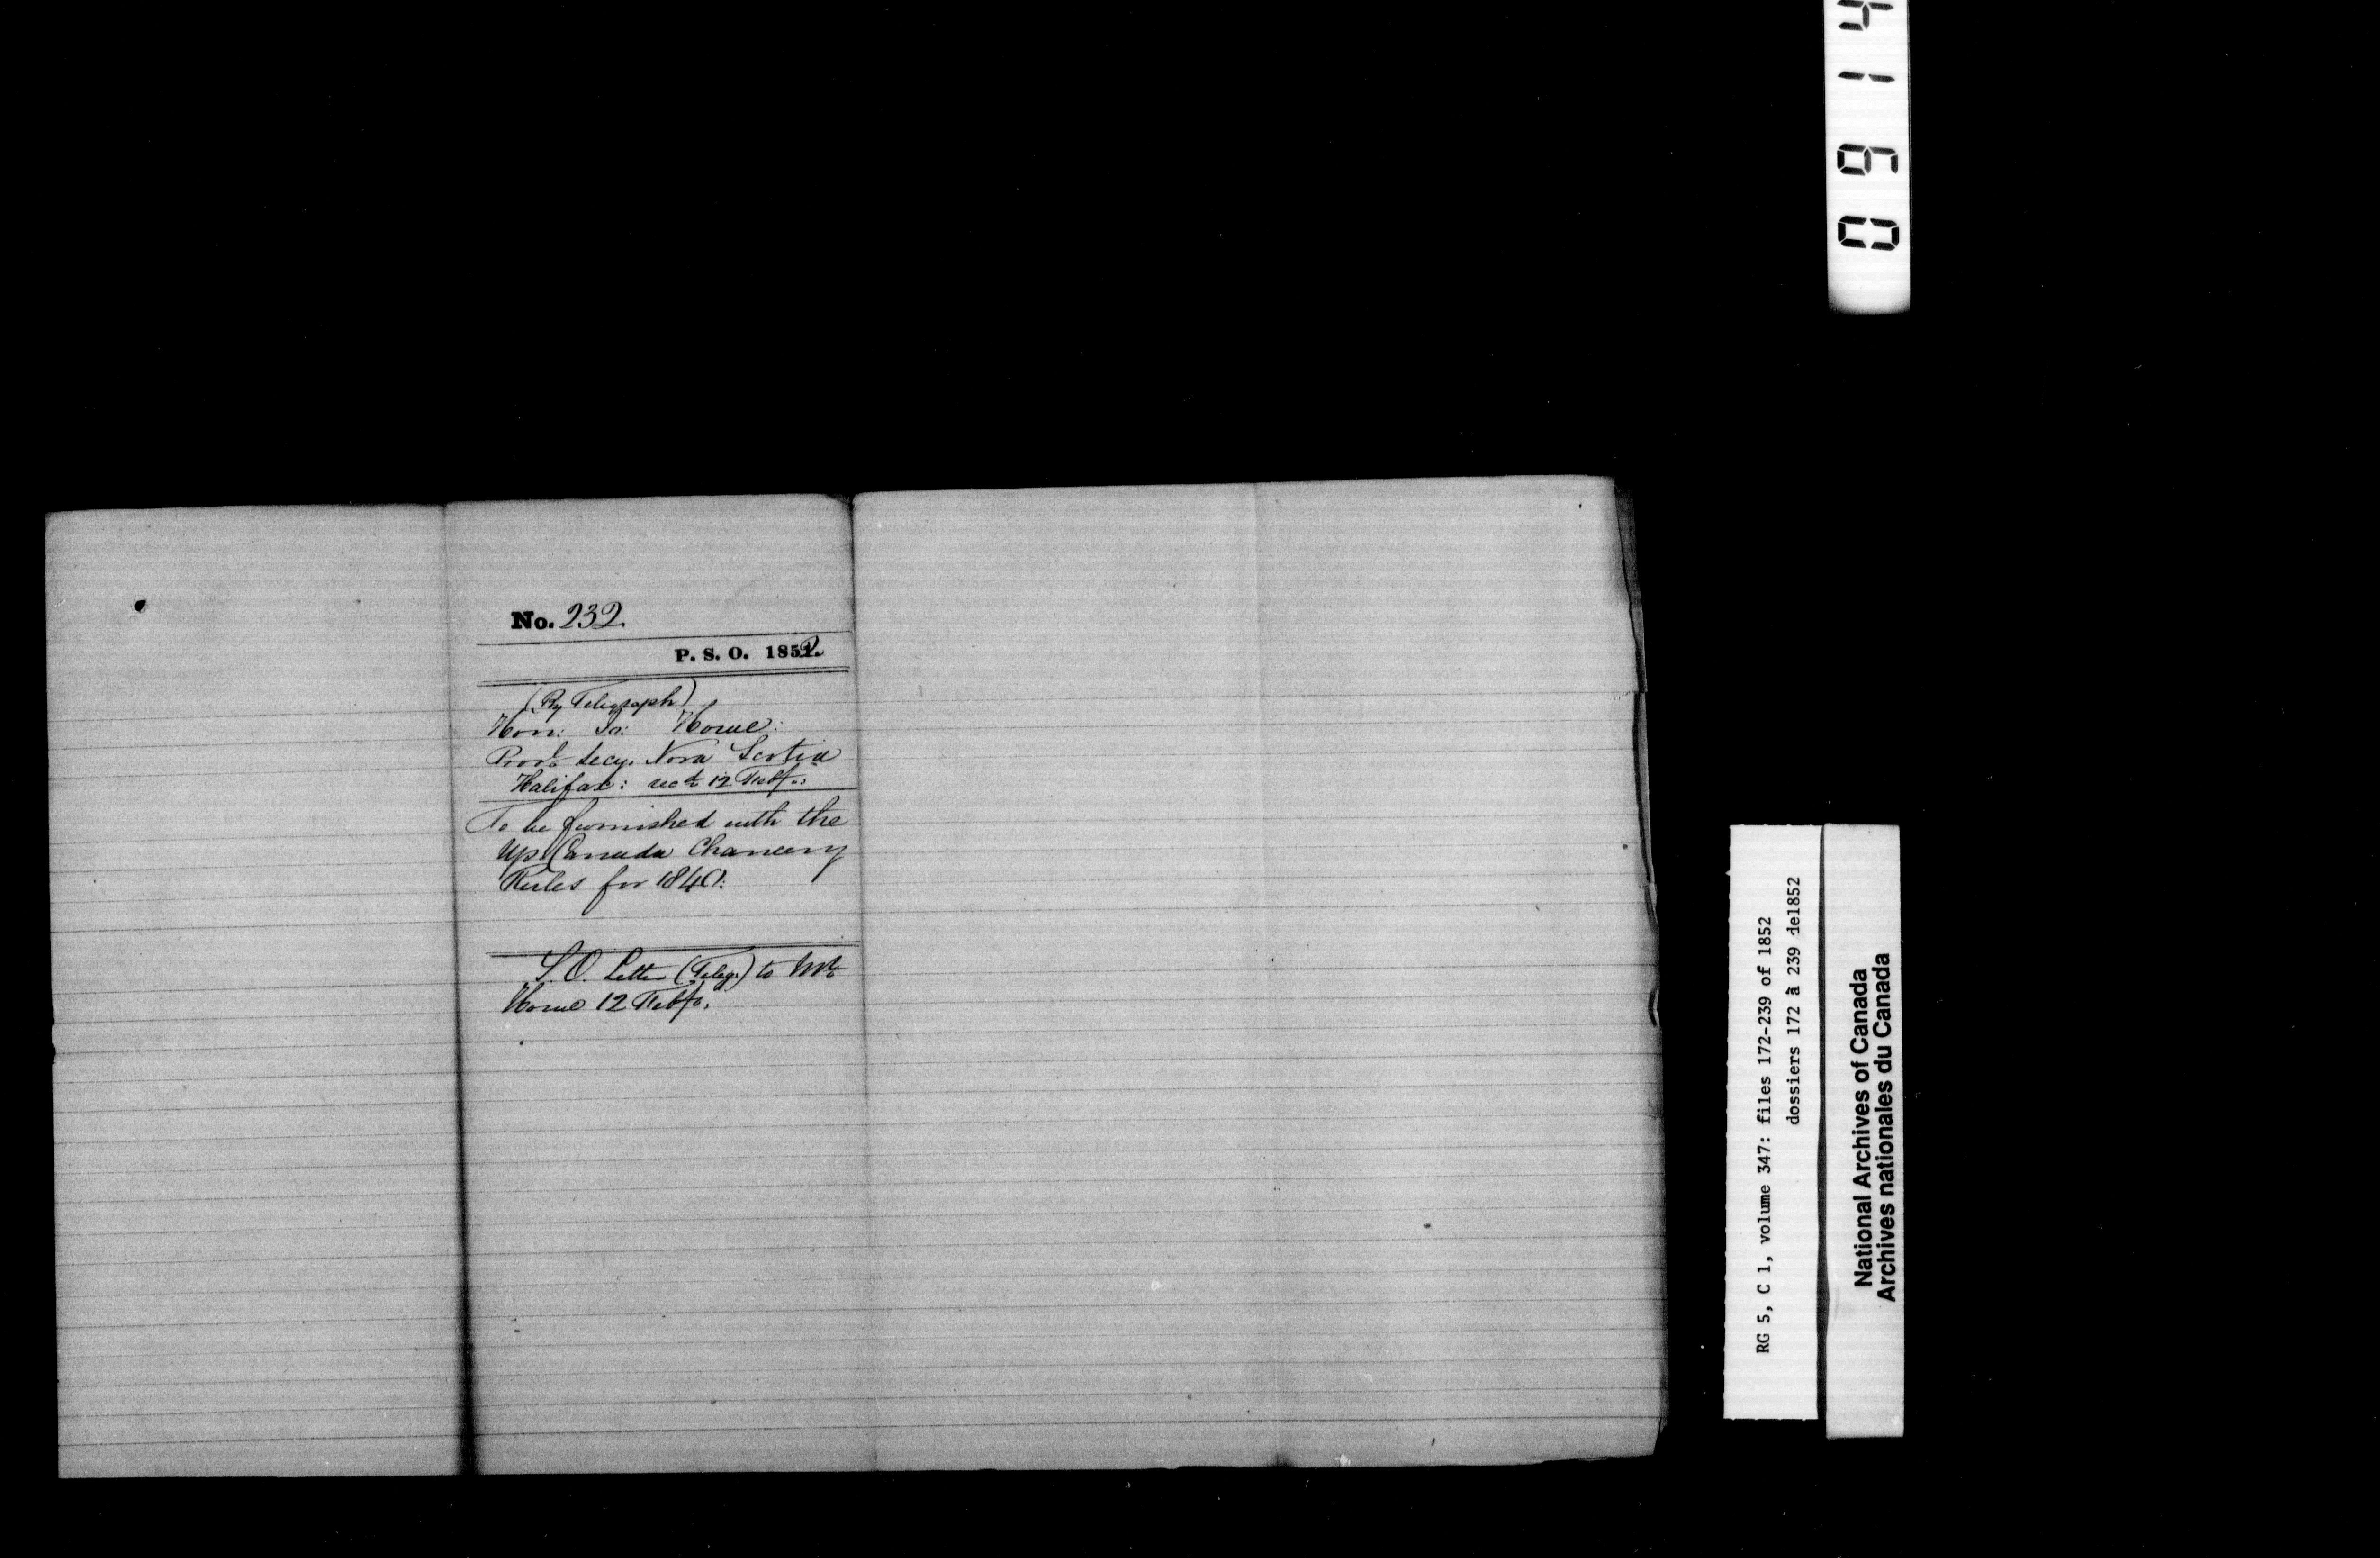 No. 232.
P. S. O. 1852.
(By Telegraph)
Hon: Jos: Howe:
Provl. Secy. Nova Scotia
Halifax: recd. 12 Feby.:
To be furnished with the
Up. Canada Chancery
Rules for 1840:
S. O. Letter (Teleg.) to Mr.
Howe 12 Feby.
0914
RG 5, C 1, volume 347: files 172-239 of 1852
dossiers 172 à 239 de1852
National Archives of Canada
Archives nationales du Canada